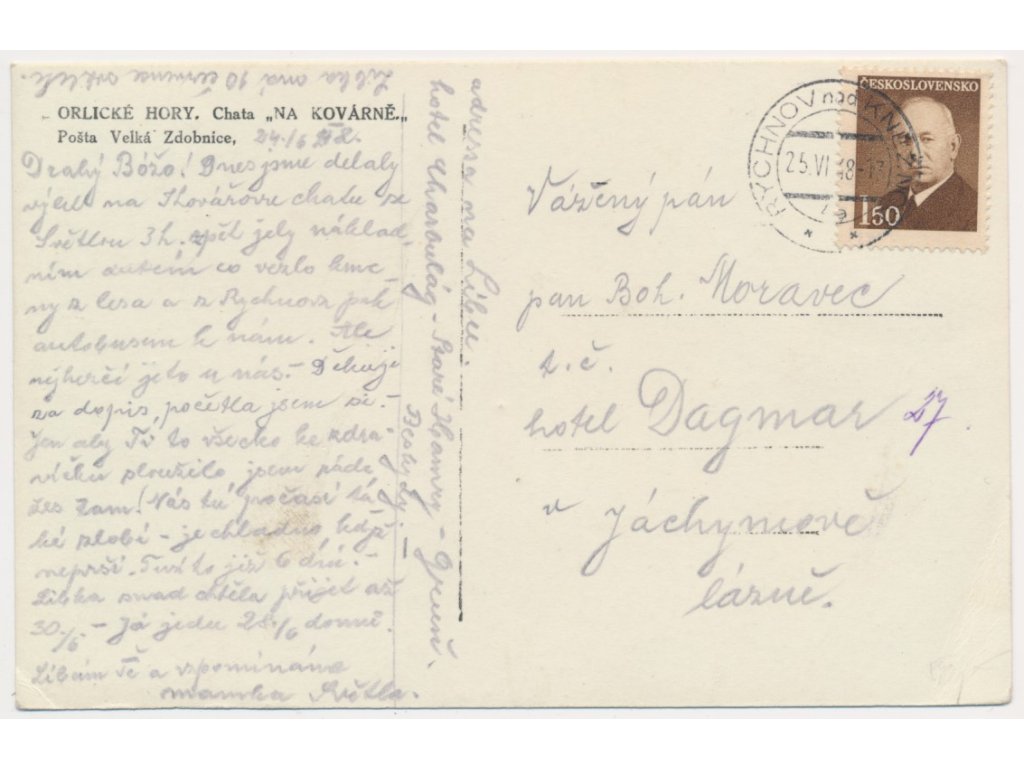 ORLICKÉ HORY. Chata „NA KOVÁRNĚ„
Pošta Velká Zdobnice, 24/6
Drahý Bóžo! Dnes jsme dělaly
výlet na Kovářovu chatu se
Světlou 3h. zpět jely náklad-
ním autem co vezlo kme-
ny z lesa a z Rychnova pak
autobusem k nám. Ale
nejhezčí je to u nás. - Děkuji
za dopis, početla jsem si. -
Jen aby Ti to všecko ke zdra-
víčku sloužilo jsem ráda
žes tam! Nás tu počasí ta-
ké zlobí - je chladno, když
neprší. Trvá to již 6 dní. -
Libka snad chtěla přijet až
30./6. - Já jedu 28./6 domů.
Líbám Tě a vzpomínáme
mamka Světla.
Libka má 10 července
adressa na Libu:
hotel Charbulág - Staré Hamry - Gruň.
Beskydy
ČESKOSLOVENSKO
1·50
RYCHNOV nad KNĚŽNOU
25.VI 48-13
Vážený pán
pan Boh. Moravec
t. č.
hotel Dagmar 27
v Jáchymově
lázně.